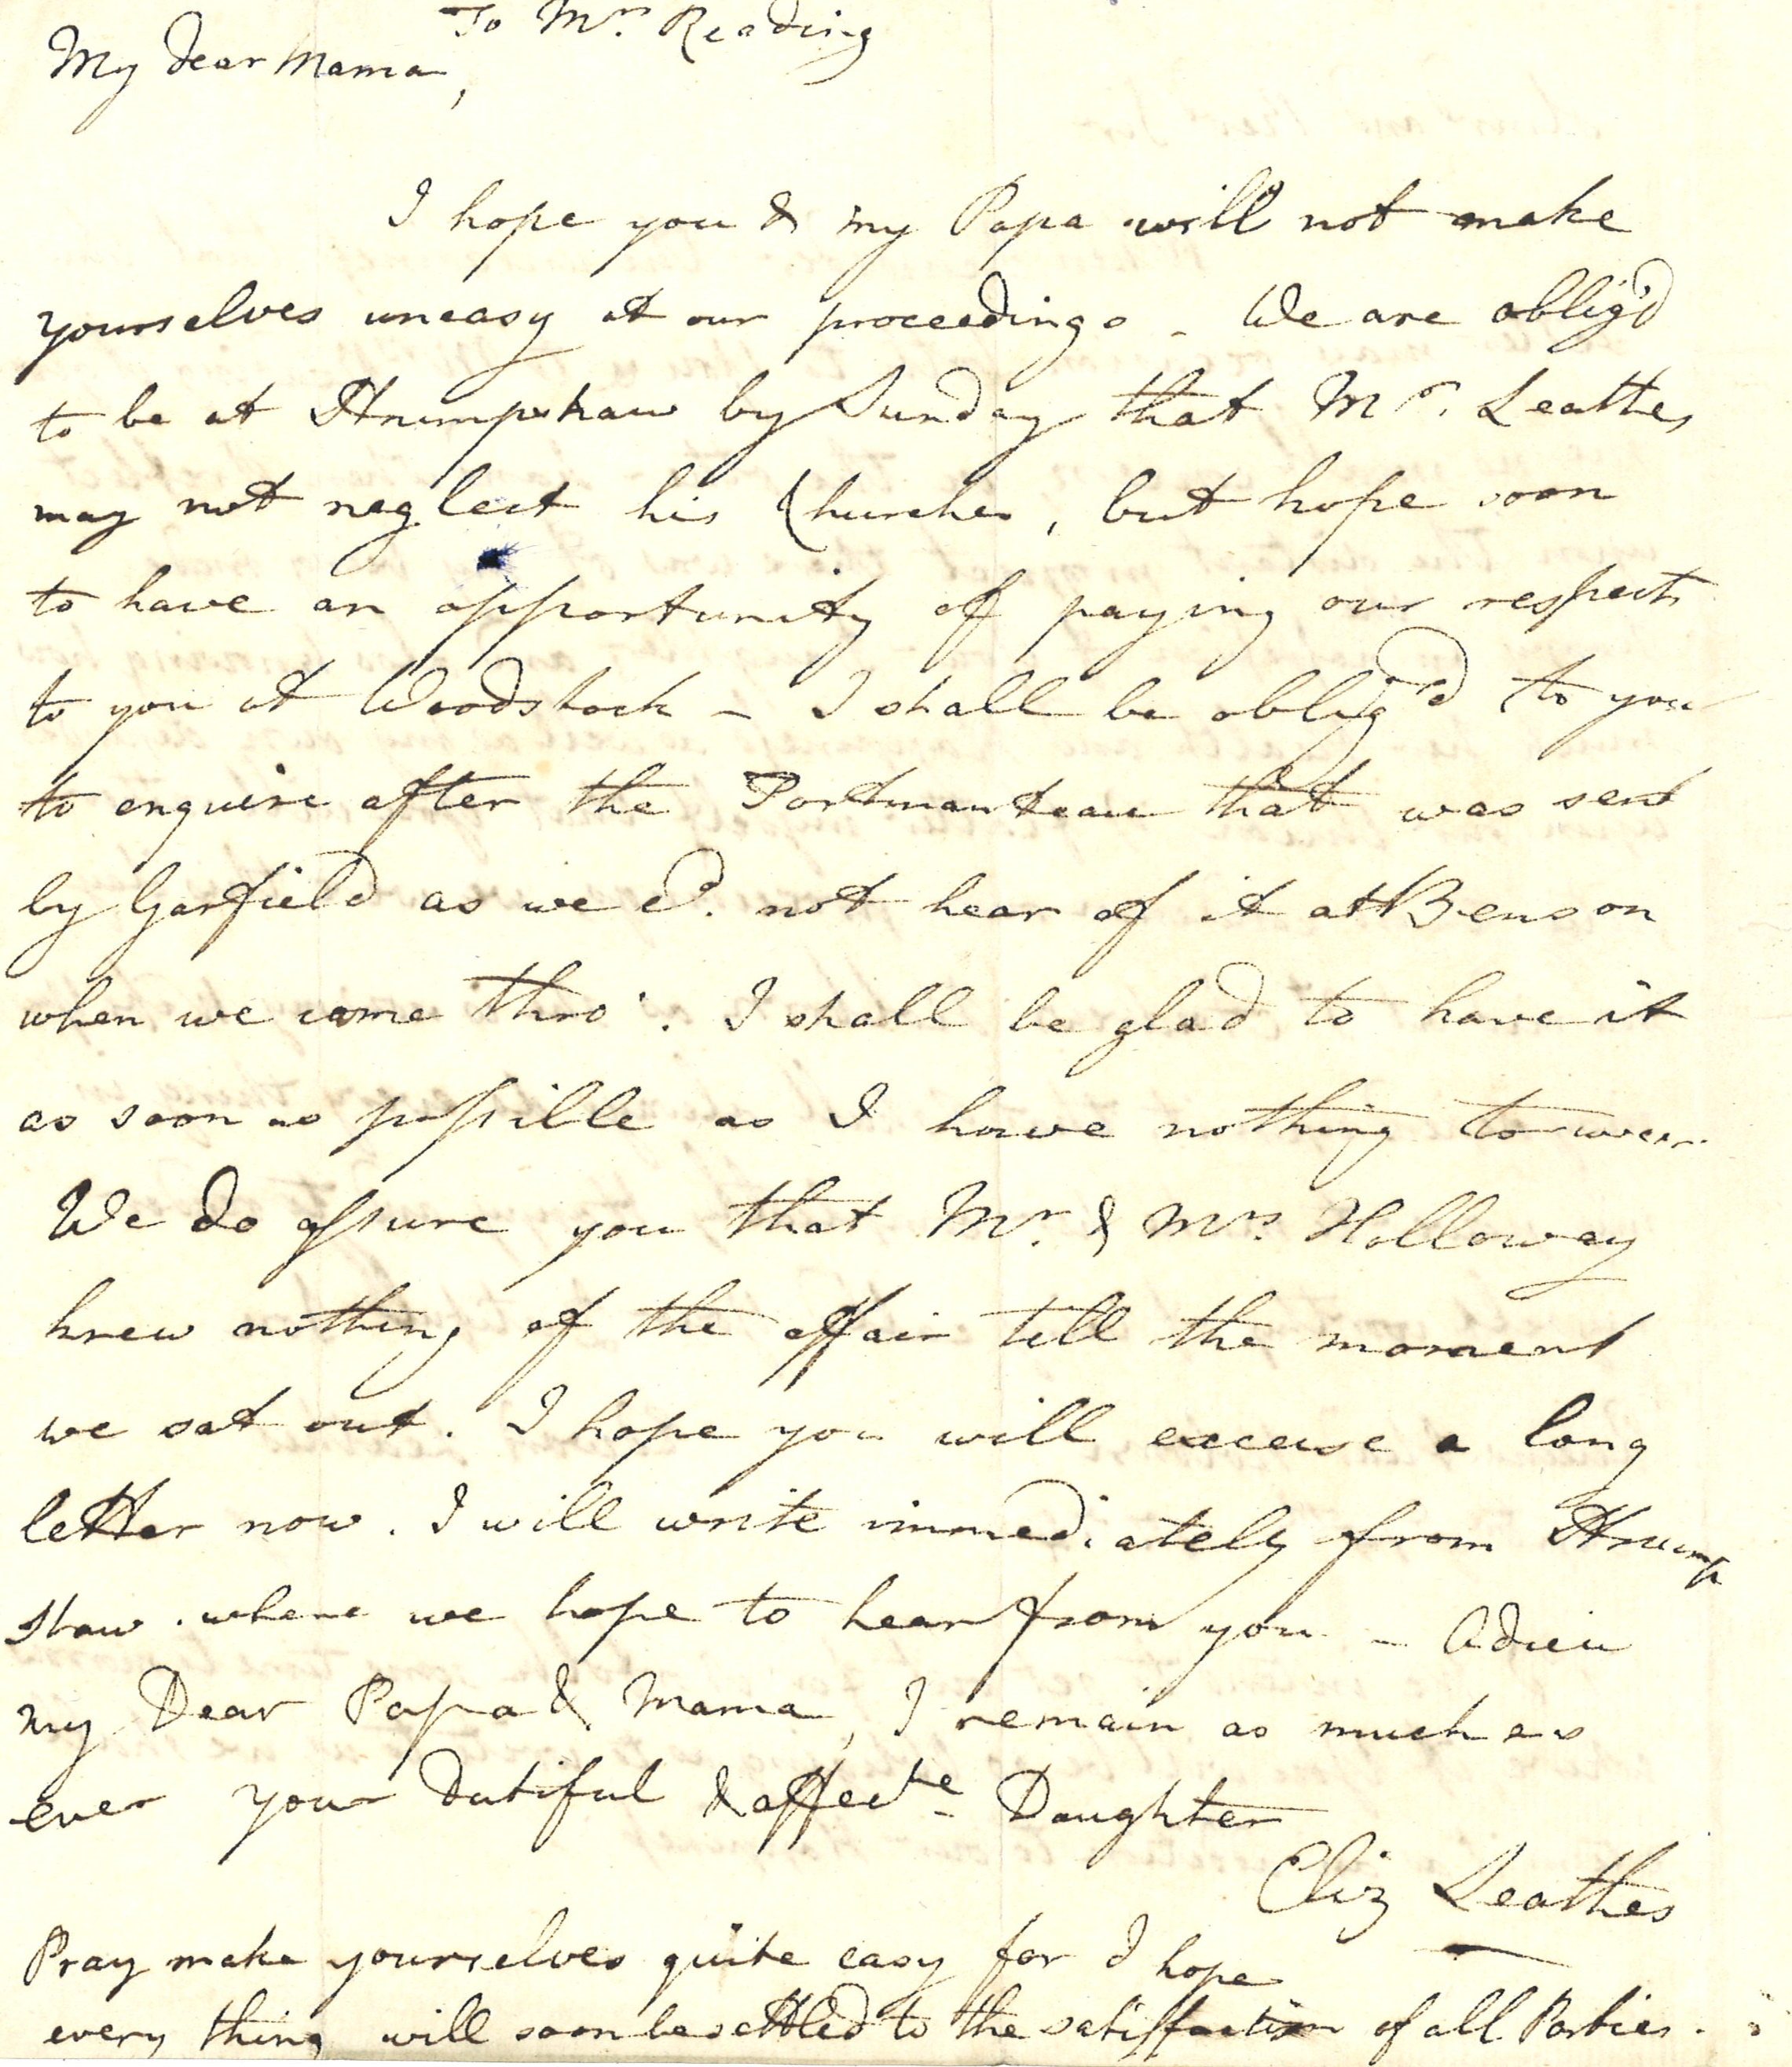 To Mrs. Reading
My Dear Mama,
I hope you & my Papa will not make
yourselves uneasy at our proceedings - We are oblig'd
to be at Strumpshaw by Sunday that Mr. Leathes
may not neglect his Churches, but hope soon
to have an opportunity of paying our respects
to you at Woodstock - I shall be oblig'd to you
to enquire after the Portmanteau that was sent
by Garfield as we cd. not hear of it at Benson
when we came thro'. I shall be glad to have it
as soon as possible as I have nothing to wear.
We do assure you that Mr. & Mrs. Holloway
knew nothing of the affair till the moment
we sat out. I hope you will excuse a long
letter now. I will write immediately from Strump
shaw where we hope to hear from you - Adieu
my Dear Papa & Mama, I remain as much as
ever your dutiful & affecte. Daughter
Eliz Leathes
Pray make yourselves quite easy for I hope
every thing will soon be settled to the satisfaction of all Parties.